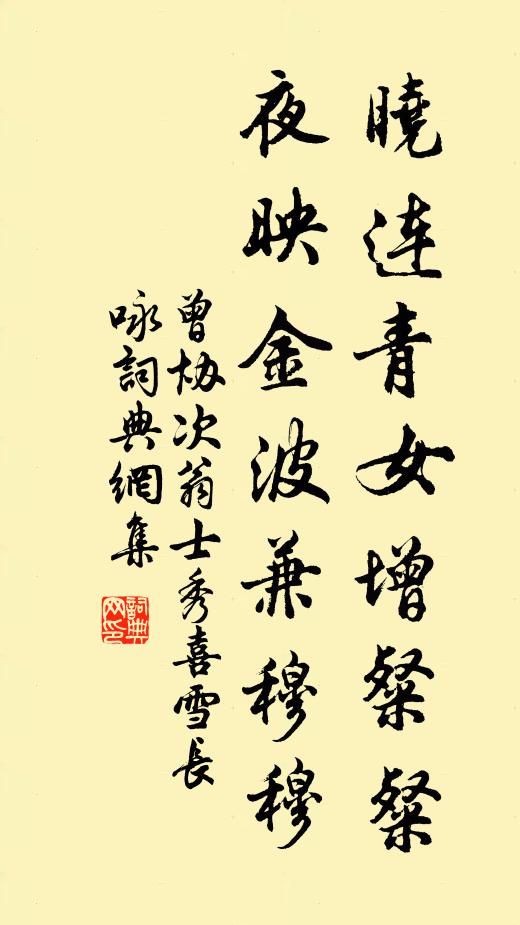 曉連青女增粲粲
夜映金波兼穆穆
曾協次翁士秀喜雪長
咏詞典網集
詞典网印